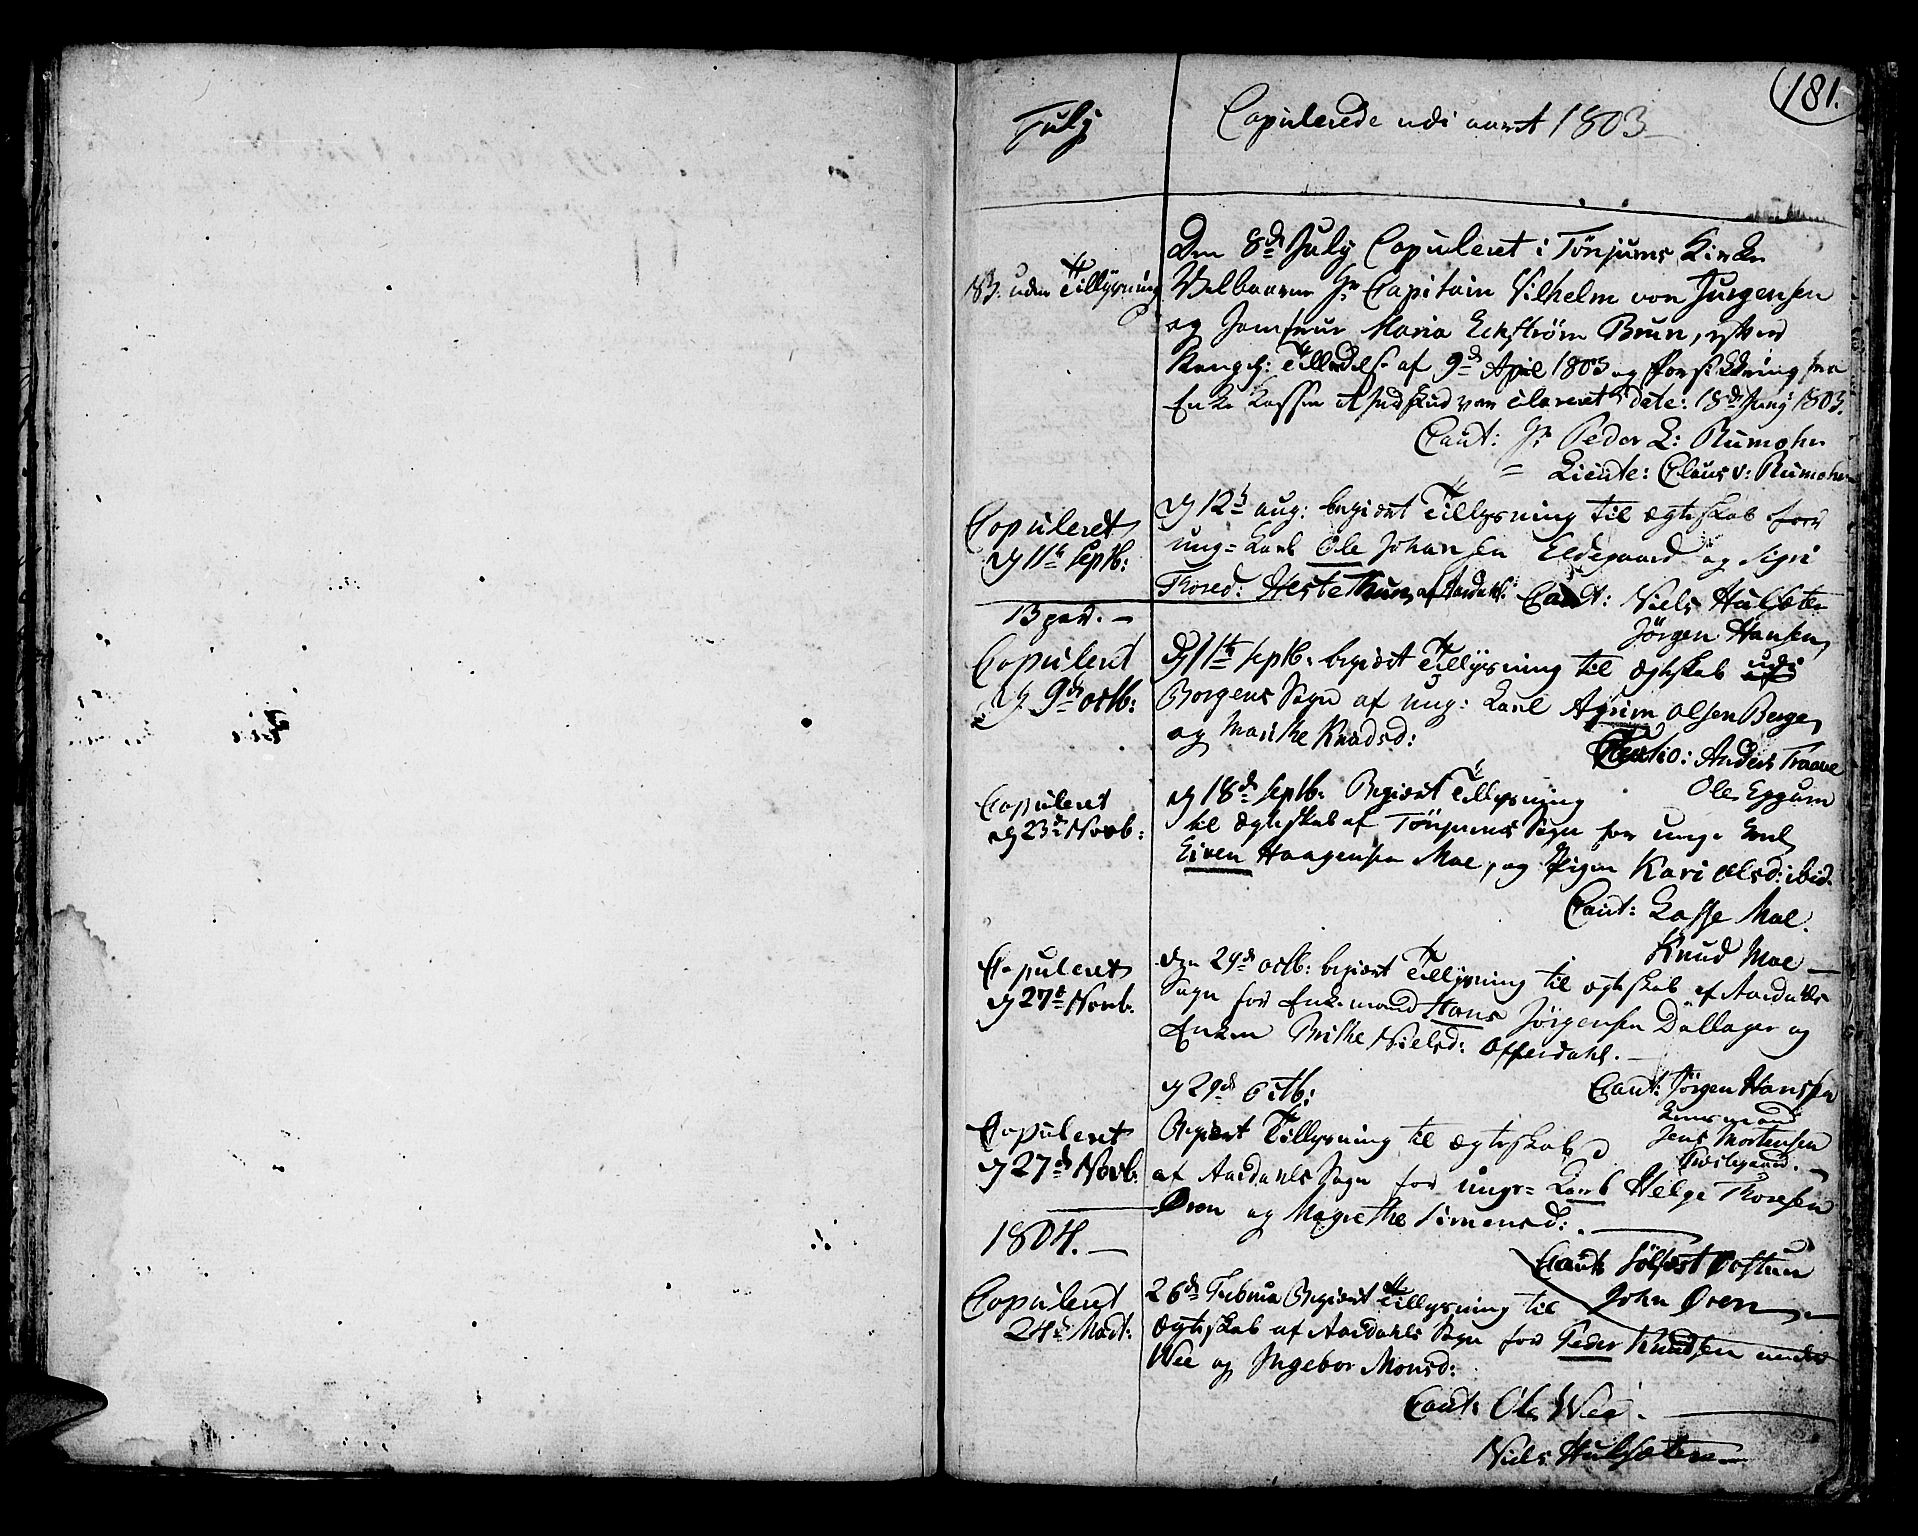 181.
July
Copulerede udi aaret 1803
183. uden Tillysning
Den 8de July Copuleret i Tönjums Kirke
Velbaarne Hr Capitain Vilhelm von Jürgensen
og Jomfrue Maria Eckström Brun, efter
Kongel: Tilladelse af 9de April 1803 og Forsikkring fra
Enke Kassen date: 18de Juny 1803.
Caut: Hr Peder L: Rumohr
= Lieute: Claus v: Rumohr
Copuleret
d 11te Septb:
d 12te aug: begiert Tillysning til ægteskab for
ung= Karl Ole Johansen Eldegaard og Sigri
Thored: Hestethun, af Aardahl: Caut: Niels Hulsæter
Jörgen Hansen,
13 par. —
Copuleret
d. 9de octb:
d 11te Septb: begiert Tillysning til ægteskab udi
Borgens Sogn af ung: Karl Agrim Olsen Berge,
og Marithe Knudsd:
Cautio: Anders Traave
Ole Eggum
Copuleret
d 23de Novb:
d 18de Septb: Begiert Tillysning
til ægteskab af Tönjums Sogn for unge Karl
Eiven Haagensen Moe, og Pigen Kari Olsd: ibid.
Caut: Lasse Moe.
Knud Moe —
Copuleret
d 27de Novb.
den 29de octb: begiert Tillysning til ægteskab af Aardahls
Sogn for Enkemand Hans Jörgensen Dallager og
Enken Brithe Nielsd: Offerdahl. —
Caut: Jörgen Hansen
Jens Mortensen
d 29de octb:
Copuleret
d 27de Novb.
Begiert Tillysning til ægteskab
af Aardahls Sogn for unge= Karl Helge Thoresen
Øren og Magrethe Simensd:
Caut: Sölfest
John Øren
1804. —
Copuleret
24de Mart:
26de Februa Begiert Tillysning til
ægteskab af Aardahls Sogn for Peder Knudsen
Wee og Ingebor Monsd:
Caut: Ole Wee.
Niels Hulsæter